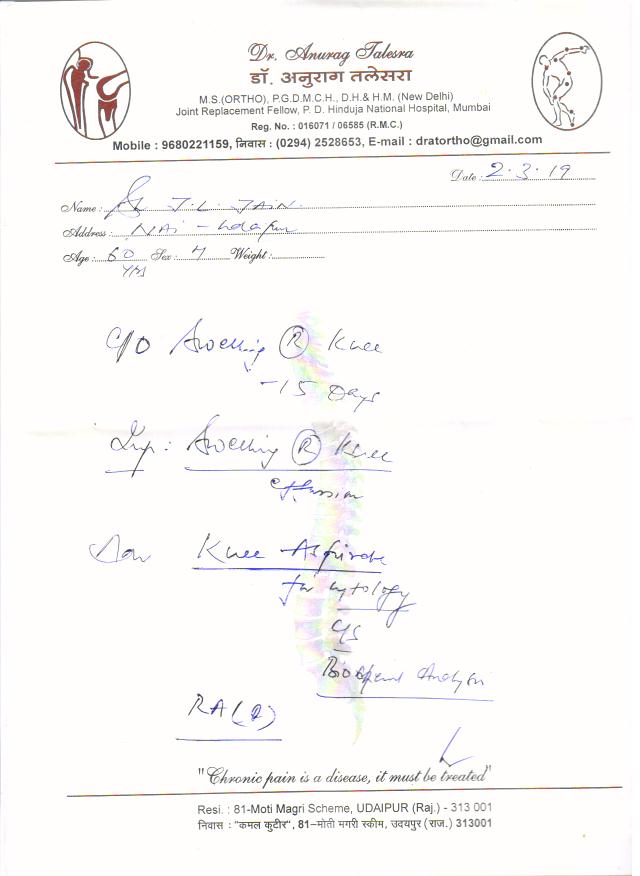 Dr. Anurag Talesra
डॉ. अनुराग तलेसरा
M.S.(ORTHO), P.G.D.M.C.H., D.H.& H.M. (New Delhi)
Joint Replacement Fellow, P. D. Hinduja National Hospital, Mumbai
Reg. No. : 016071 / 06585 (R.M.C.)
Mobile : 9680221159, निवास : (0294) 2528653, E-mail : dratortho@gmail.com
Date : 2.3.19
Name : J.L. JAIN.
Address : NAI - Udaipur
Age : 60 Sex : M Weight :
yrs
C/O Swelling (R) Knee
-15 Days
Imp: Swelling (R) Knee
effusion
Adv Knee Aspirate
for cytology
C/S
Analysis
RA
"Chronic pain is a disease, it must be treated"
Resi. : 81-Moti Magri Scheme, UDAIPUR (Raj.) - 313 001
निवास : "कमल कुटीर", 81–मोती मगरी स्कीम, उदयपुर (राज.) 313001